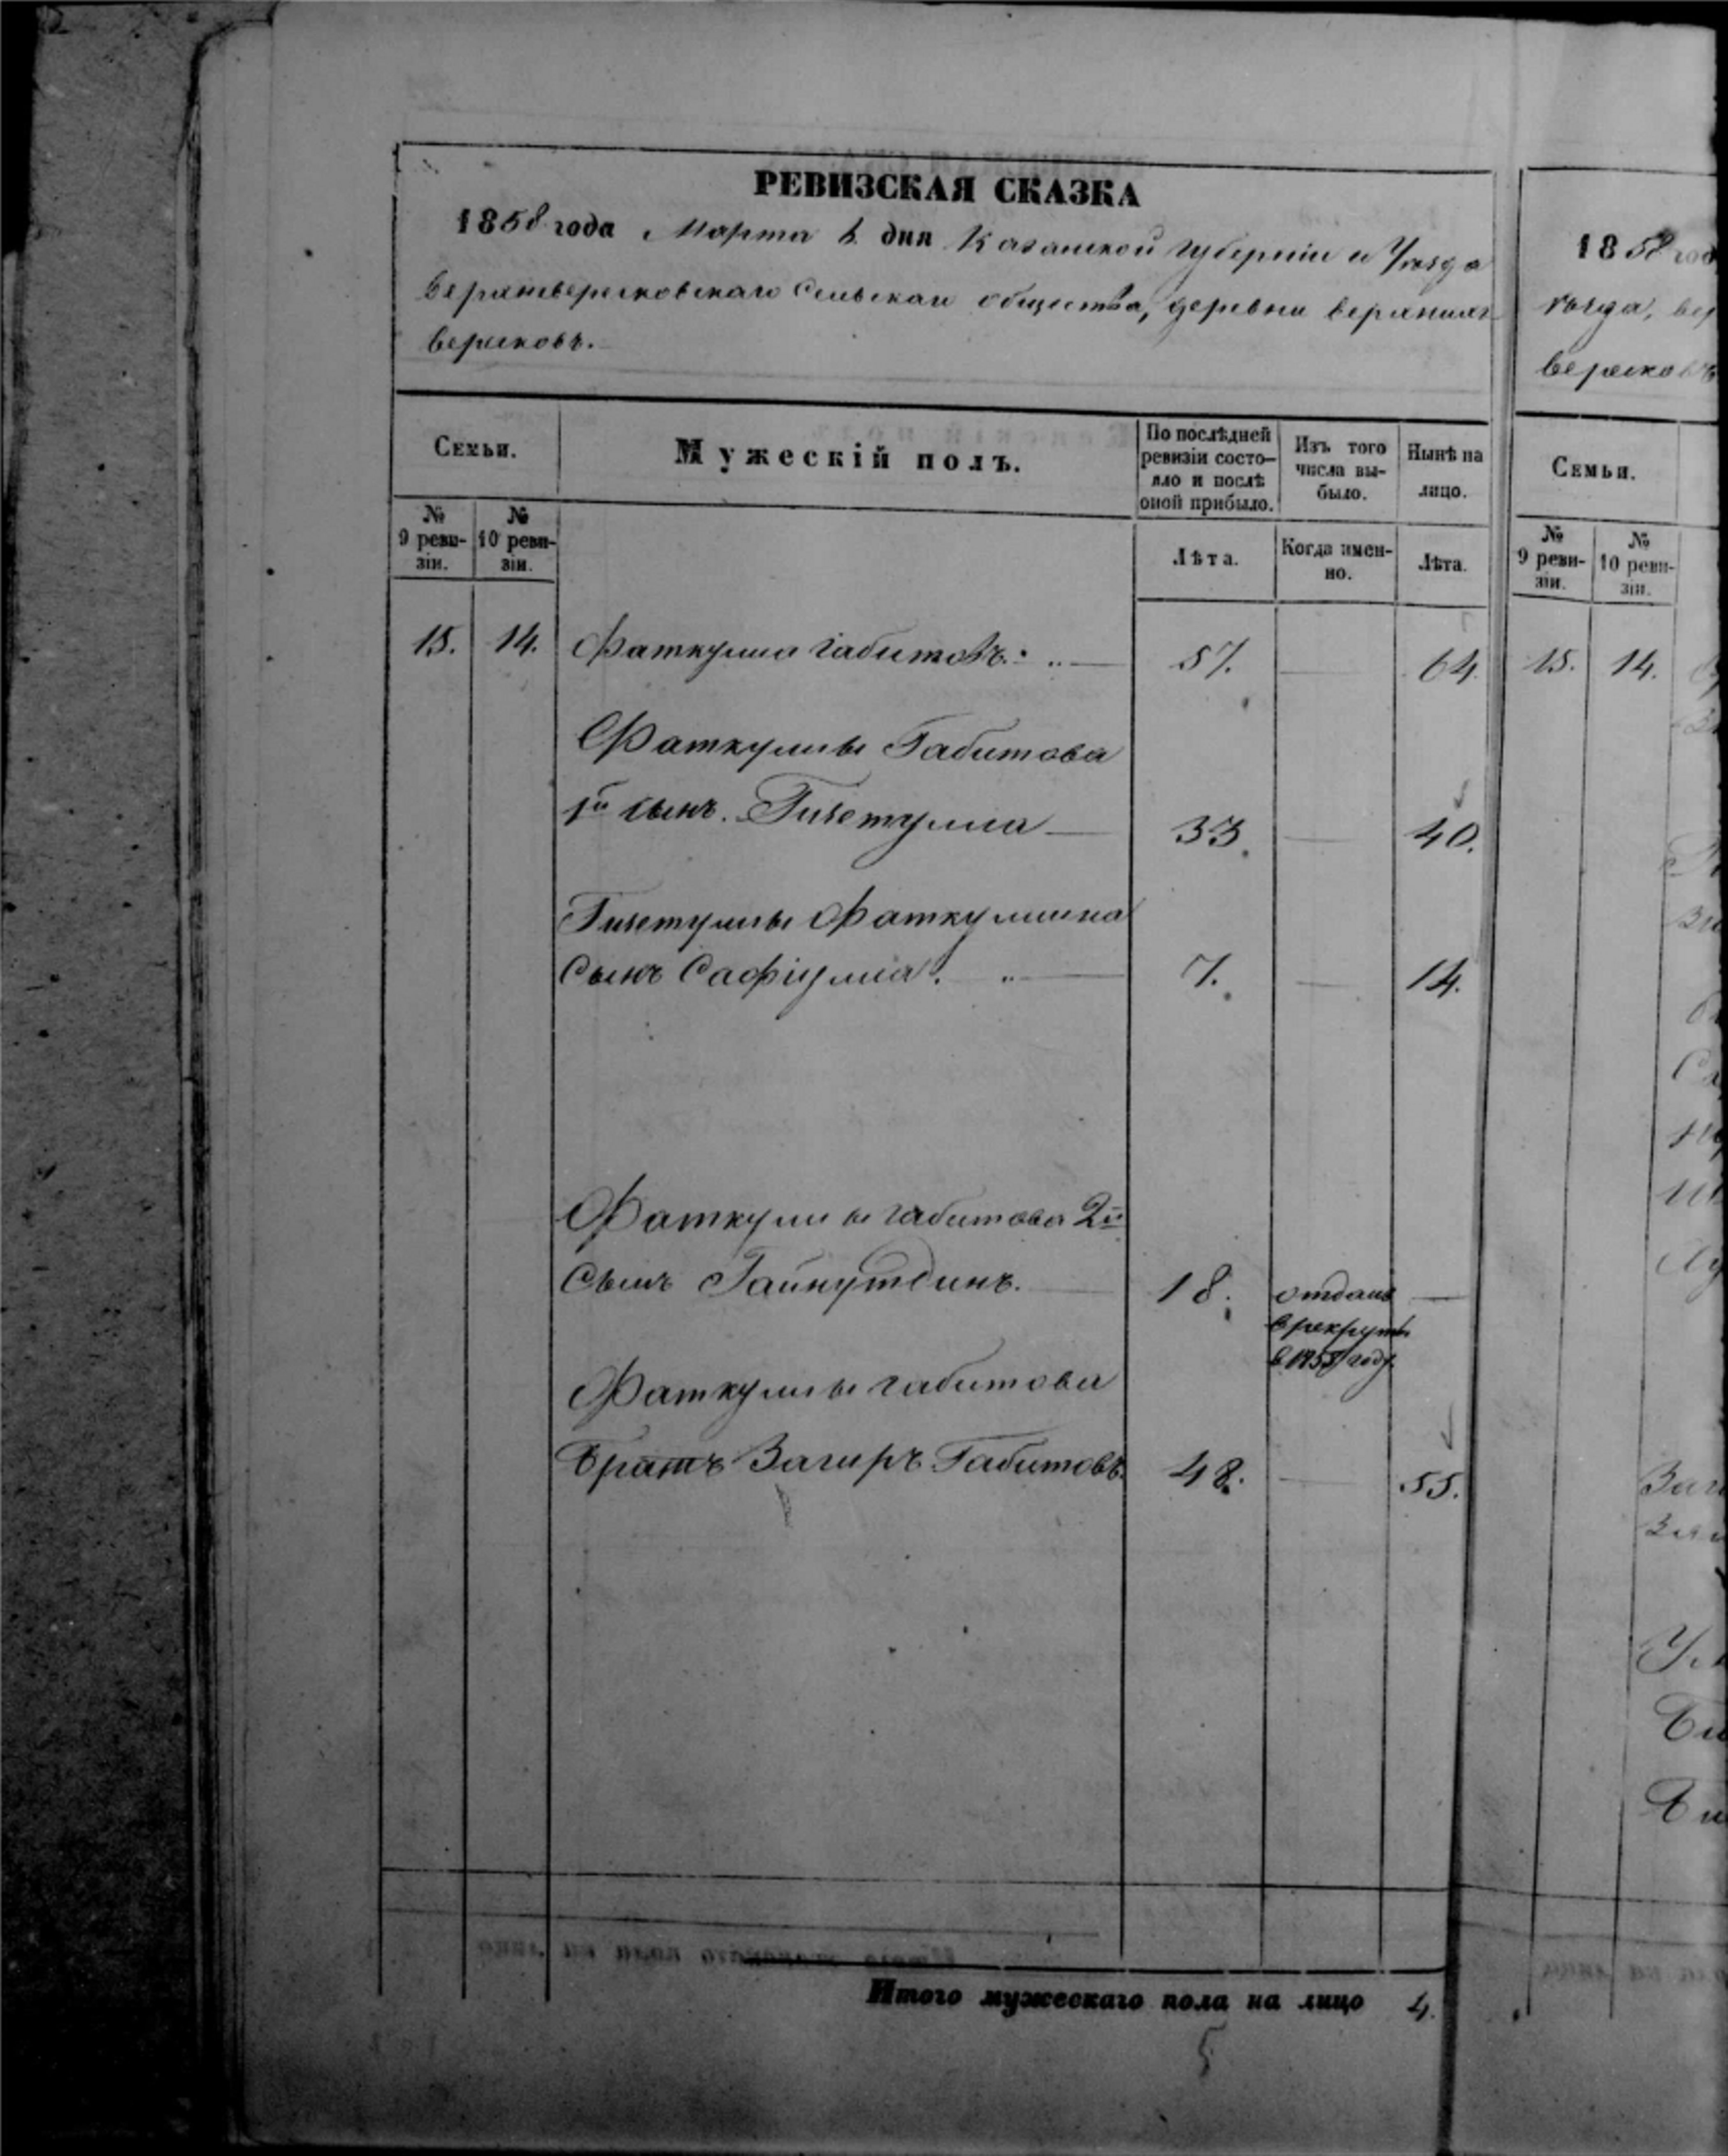 РЕВИЗСКАЯ СКАЗКА
1858 года Марта дня Казанской губернiи и Уѣзда
Сельскаго общества, деревни верхнихъ
верезковъ.
Семьи.
Мужескiй полъ.
По послѣдней ревизiи состояло и послѣ оной прибыло.
Изъ того числа выбыло.
Нынѣ на лицо.
№ 9 ревизiи.
№ 10 ревизiи.
Лѣта.
Когда именно.
Лѣта.
15. 14. Фаткулла Габитовъ. 57. — 64.
Фаткуллы Габитова
1й сынъ. Гизетулла — 33. — 40.
Гизетуллы Фаткуллина
Сынъ Сафiулла. — 7. — 14.
Фаткуллы Габитова 2й
Сынъ Гайнутдинъ. 18. отданъ —
в рекруты
в 1855 году.
Фаткуллы Габитова
Братъ Загиръ Габитовъ. 48. — 55.
Итого мужескаго пола на лицо 4.
5
1858 год
Семьи.
№ 9 ревизiи.
№ 10 ревизiи.
15. 14.